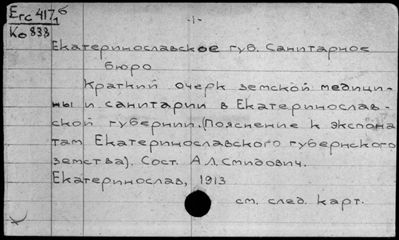 Erc 417б
1
Ко 838
-1-
Екатеринославское губ. Санитарное
бюро
Краткий очерк земской медици-
ны и санитарии в Екатеринослав-
ской губернии. (Пояснение к экспона
там Екатеринославского губернского
земства). Сост. А.Л. Смидович.
Екатеринослав, 1913
см. след. карт.